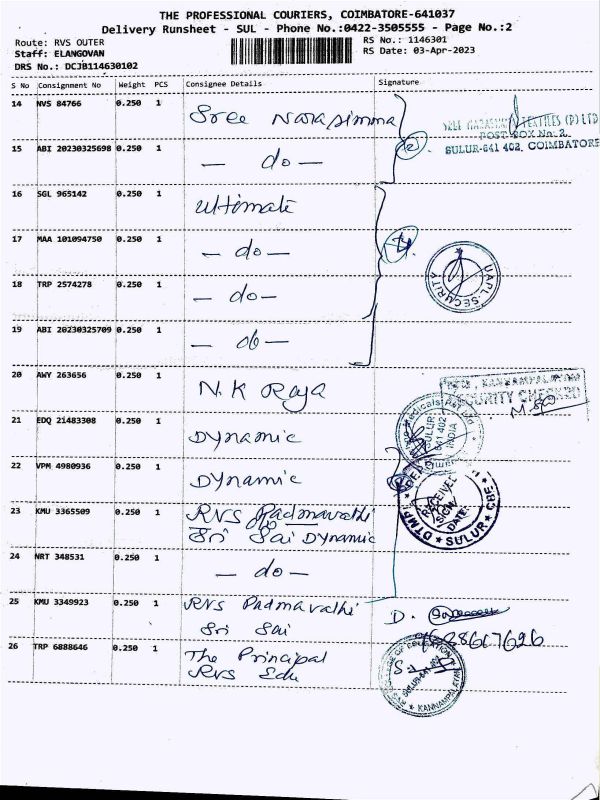 THE PROFESSIONAL COURIERS, COIMBATORE-641037
Delivery Runsheet - SUL - Phone No.:0422-3505555 - Page No.:2
Route: RVS OUTER
RS No.: 1146301
Staff: ELANGOVAN
RS Date: 03-Apr-2023
DRS No.: DCJB114630102
S No Consignment No Weight PCS Consignee Details Signature
14 NVS 84766 0.250 1 Sree Narasimma
SREE NARASIMMA TEXTILES (P) LTD
POST BOX No. 2.
SULUR-641 402, COIMBATORE
15 ABI 20230325698 0.250 1 — do — (2)
16 SGL 965142 0.250 1 ultimate
17 MAA 101094750 0.250 1 — do —
18 TRP 2574278 0.250 1 — do —
UAPL-SECURITY
19 ABI 20230325709 0.250 1 — do —
20 AWY 263656 0.250 1 N.K Raja
KANNAMPALAYAM
SECURITY CHECKED
21 EDQ 21483308 0.250 1 Dynamic
SULUR
641 402
INDIA
22 VPM 4980936 0.250 1 Dynamic
RECEIVED
SIGN
DATE
SULUR
23 KMU 3365509 0.250 1 RVS Padmavathi
Sri Sai Dynamic
24 NRT 348531 0.250 1 — do —
25 KMU 3349923 0.250 1 RVS Padmavathi
Sri Sai
D.
26 TRP 6888646 0.250 1 The Principal
RVS Edu
OF EDUCATION
SULUR-641 402
KANNAMPALAYAM